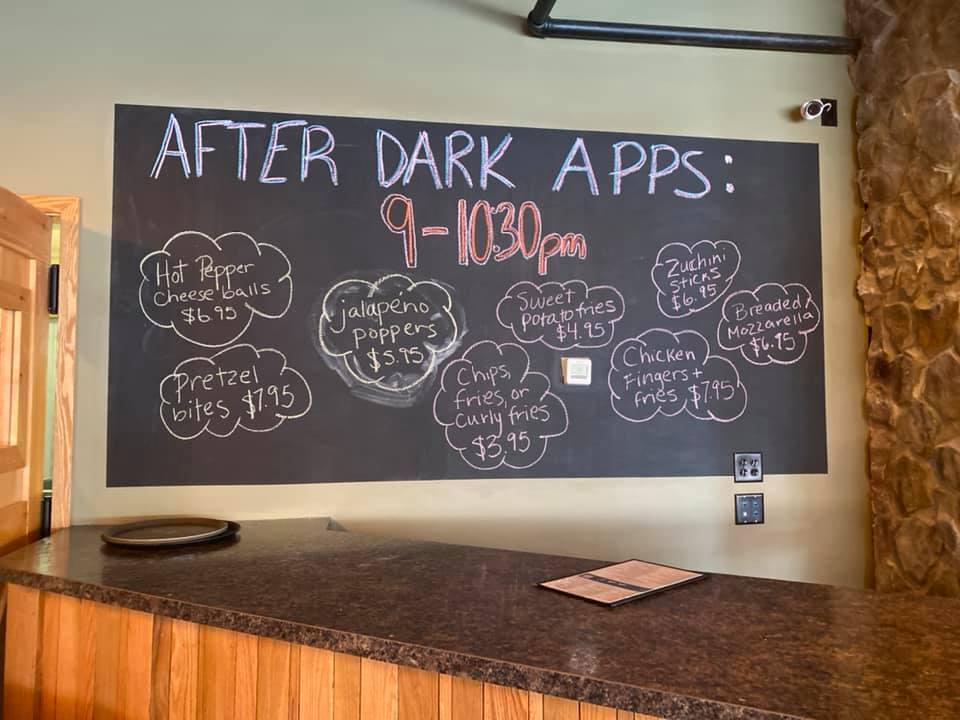 AFTER DARK APPS:
9-10:30pm
Hot Pepper
cheese balls
$6.95
jalapeno
poppers
$5.95
Sweet
potato fries
$4.95
Zucchini
sticks
$6.95
Breaded
Mozzarella
$6.95
Pretzel
bites $7.95
Chips,
fries, or
curly fries
$3.95
Chicken
Fingers +
fries $7.95